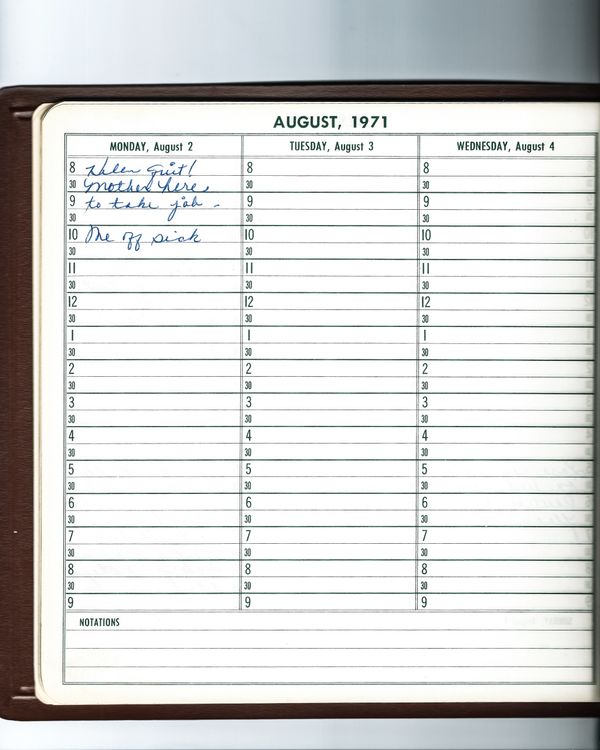 AUGUST, 1971
MONDAY, August 2
TUESDAY, August 3
WEDNESDAY, August 4
8 Helen quit! 8 8
30 Mother here, 30 30
9 to take job - 9 9
30 30 30
10 Me off sick 10 10
30 30 30
11 11 11
30 30 30
12 12 12
30 30 30
1 1 1
30 30 30
2 2 2
30 30 30
3 3 3
30 30 30
4 4 4
30 30 30
5 5 5
30 30 30
6 6 6
30 30 30
7 7 7
30 30 30
8 8 8
30 30 30
9 9 9
NOTATIONS